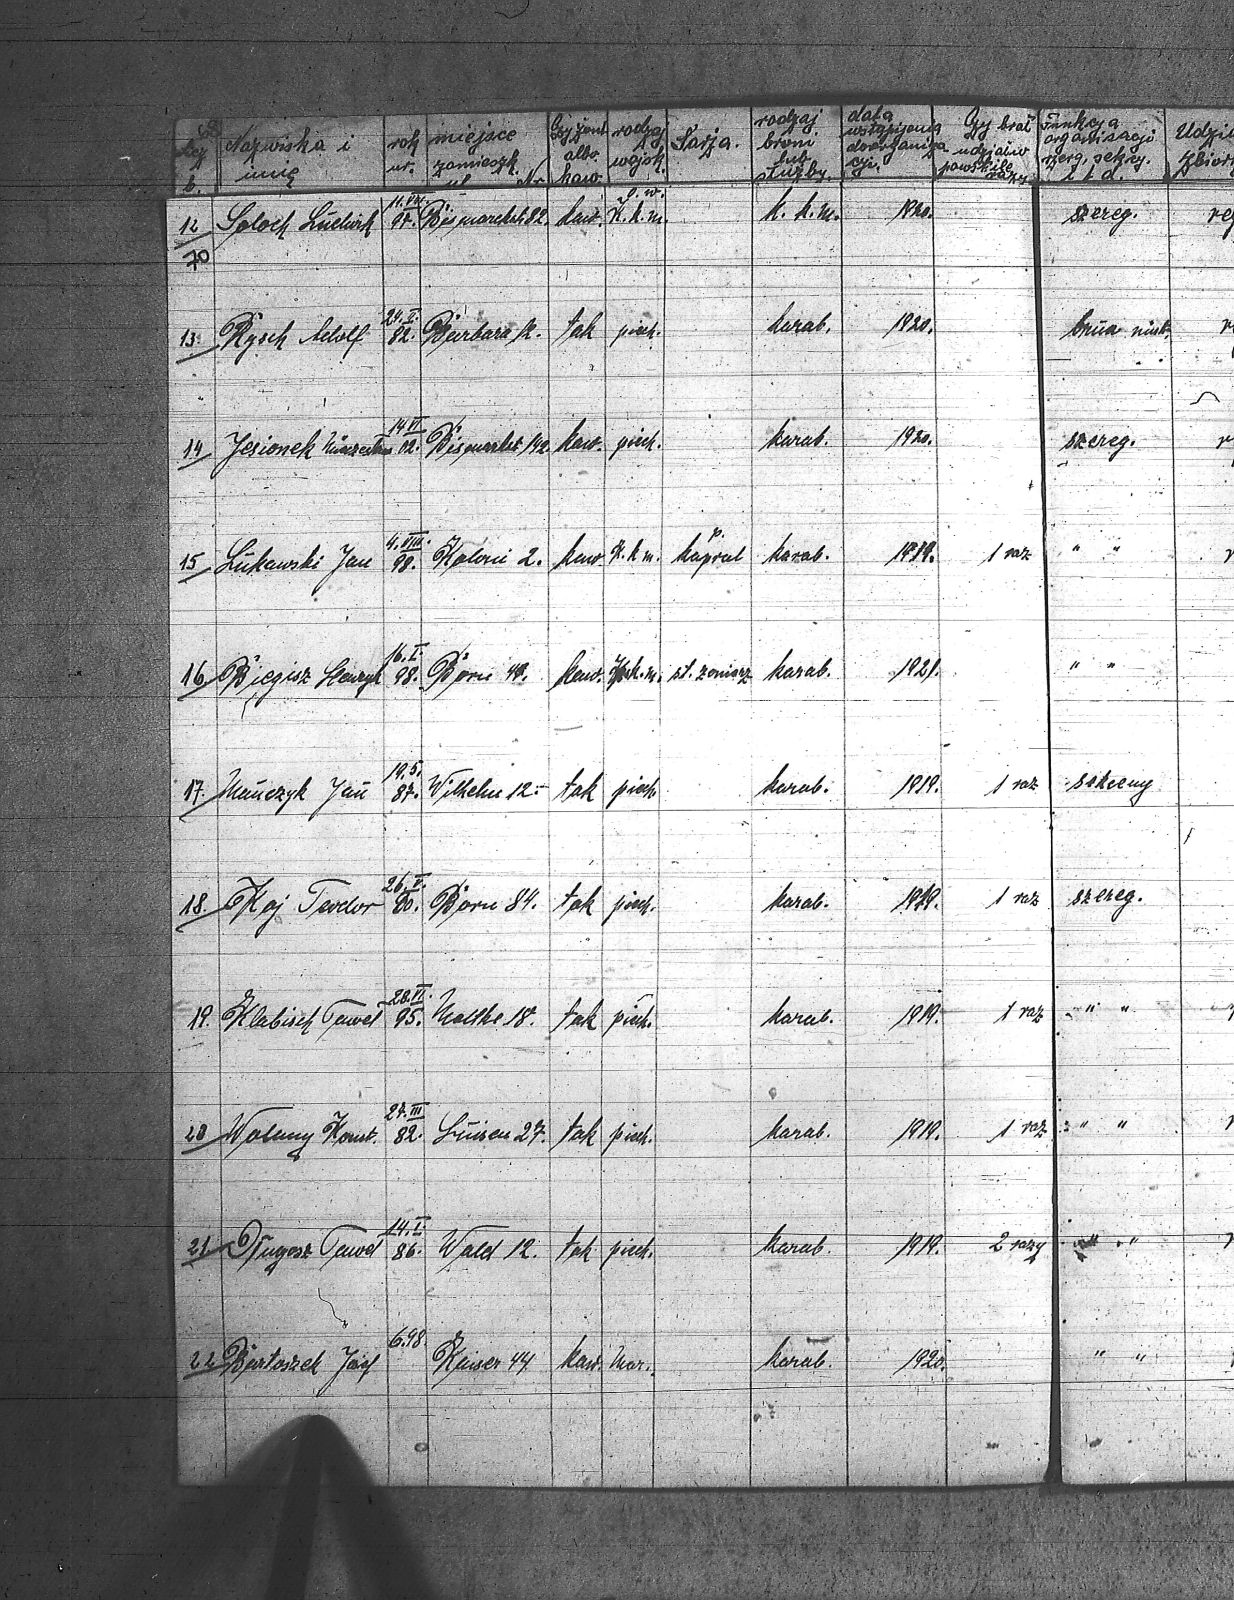 Liczb. Nazwiska i imię rok ur. miejsce zamieszk. ul. Nr. Czy żont albo kaw. rodzaj wojsk. Sarża. rodzaj broni lub służby. data wstąpienia do organizacyi. Czy brał udział w powst. ile razy Funkcja organizacji szereg. sekcy. i t. d. Udzi
12 Soloch Ludwik 11.VII. 97. Bismarckst. 82. kaw. K.k.m. k.k.m. 1920. szereg.
70
13. Rysch Adolf 24.V. 82. Barbara 12. tak piech. karab. 1920.
14 Jesionek 14 VI 02. Bismarkst 142. kaw. piech. karab. 1920. szereg.
15 Lukawski Jan 4.VIII. 98. Kolonie 2. kaw. K.k.m. kapral karab. 1919. 1 raz " "
16 Biegisz Henryk 16.I. 98. Born 49. kaw. k.m. st. żonierz karab. 1921. " "
17. Mańczyk Jan 19.5. 87. Wilhelm 12. tak piech karab. 1919. 1 raz sekcny
18. Koj Teodor 26.V. 80. Born 84. tak piech. karab. 1919. 1 raz szereg.
19. Klabisch Paweł 28.VI. 95. Moltke 18. tak piech. karab. 1919. 1 raz " "
20 Wolany Konst. 27.III 82. Luisen 27. tak piech. karab. 1919. 1 raz " "
21 Długosz Paweł 14.I. 86. Wald 12. tak piech. karab. 1919. 2 razy " "
22 Bartoszek Józef 6.98. Kaiser 44 kaw. Mar. karab. 1920. " "